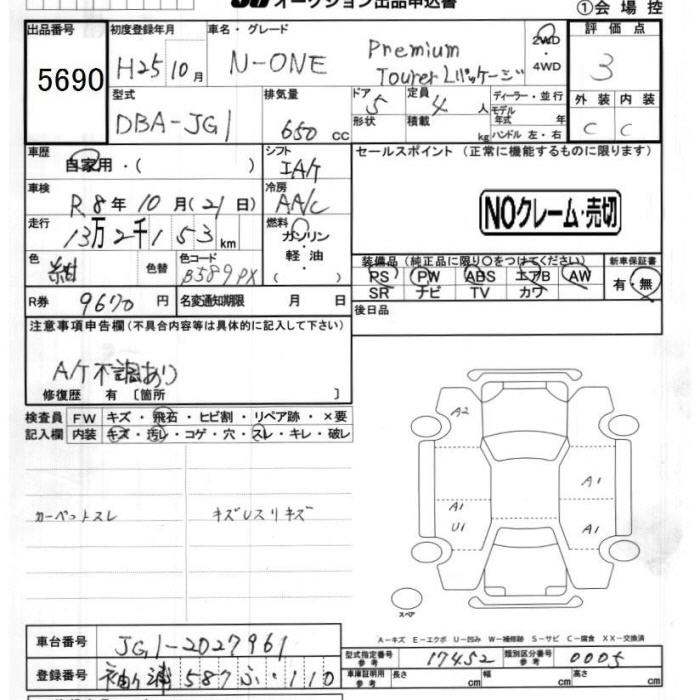 オークション出品申込書
①会場控
出品番号
5690
初度登録年月
H25 10月
車名・グレード
N-ONE
Premium
Tourer Lパッケージ
2WD
・4WD
評価点
3
型式
DBA-JG1
排気量
650 CC
ドア
5
形状
定員
4 人
積載
kg
ディーラー・並行
モデル
年式 年
ハンドル 左・右
外装 内装
C C
車歴
自家用・( )
シフト
IA/T
セールスポイント (正常に機能するものに限ります)
車検
R8年10月(21日)
冷房
AA/C
NOクレーム・売切
走行
13万2千153km
燃料
ガソリン
・軽油・
( )
色
紺
色替
色コード
B589PX
装備品 (純正品に限り○をつけてください)
PS PW ABS エアB AW
SR ナビ TV カワ
新車保証書
有・無
R券 9670円
名変通知期限 月 日
後日品
注意事項申告欄(不具合内容等は具体的に記入して下さい)
A/T不調あり
修復歴 有〔箇所 〕
検査員
記入欄
FW キズ・飛石・ヒビ割・リペア跡・×要
内装 キズ・汚レ・コゲ・穴・スレ・キレ・破レ
カーペットスレ
キズUスリキズ
A2
A1
A1
U1
A1
スペア
A-キズ E-エクボ U-凹み W-補修跡 S-サビ C-腐食 XX-交換済
車台番号 JG1-2027961
型式指定番号
参考
17452
類別区分番号
参考
0005
登録番号 袖ヶ浦 587 ふ ・110
車庫証明用
参考
長さ cm
幅 cm
高さ cm